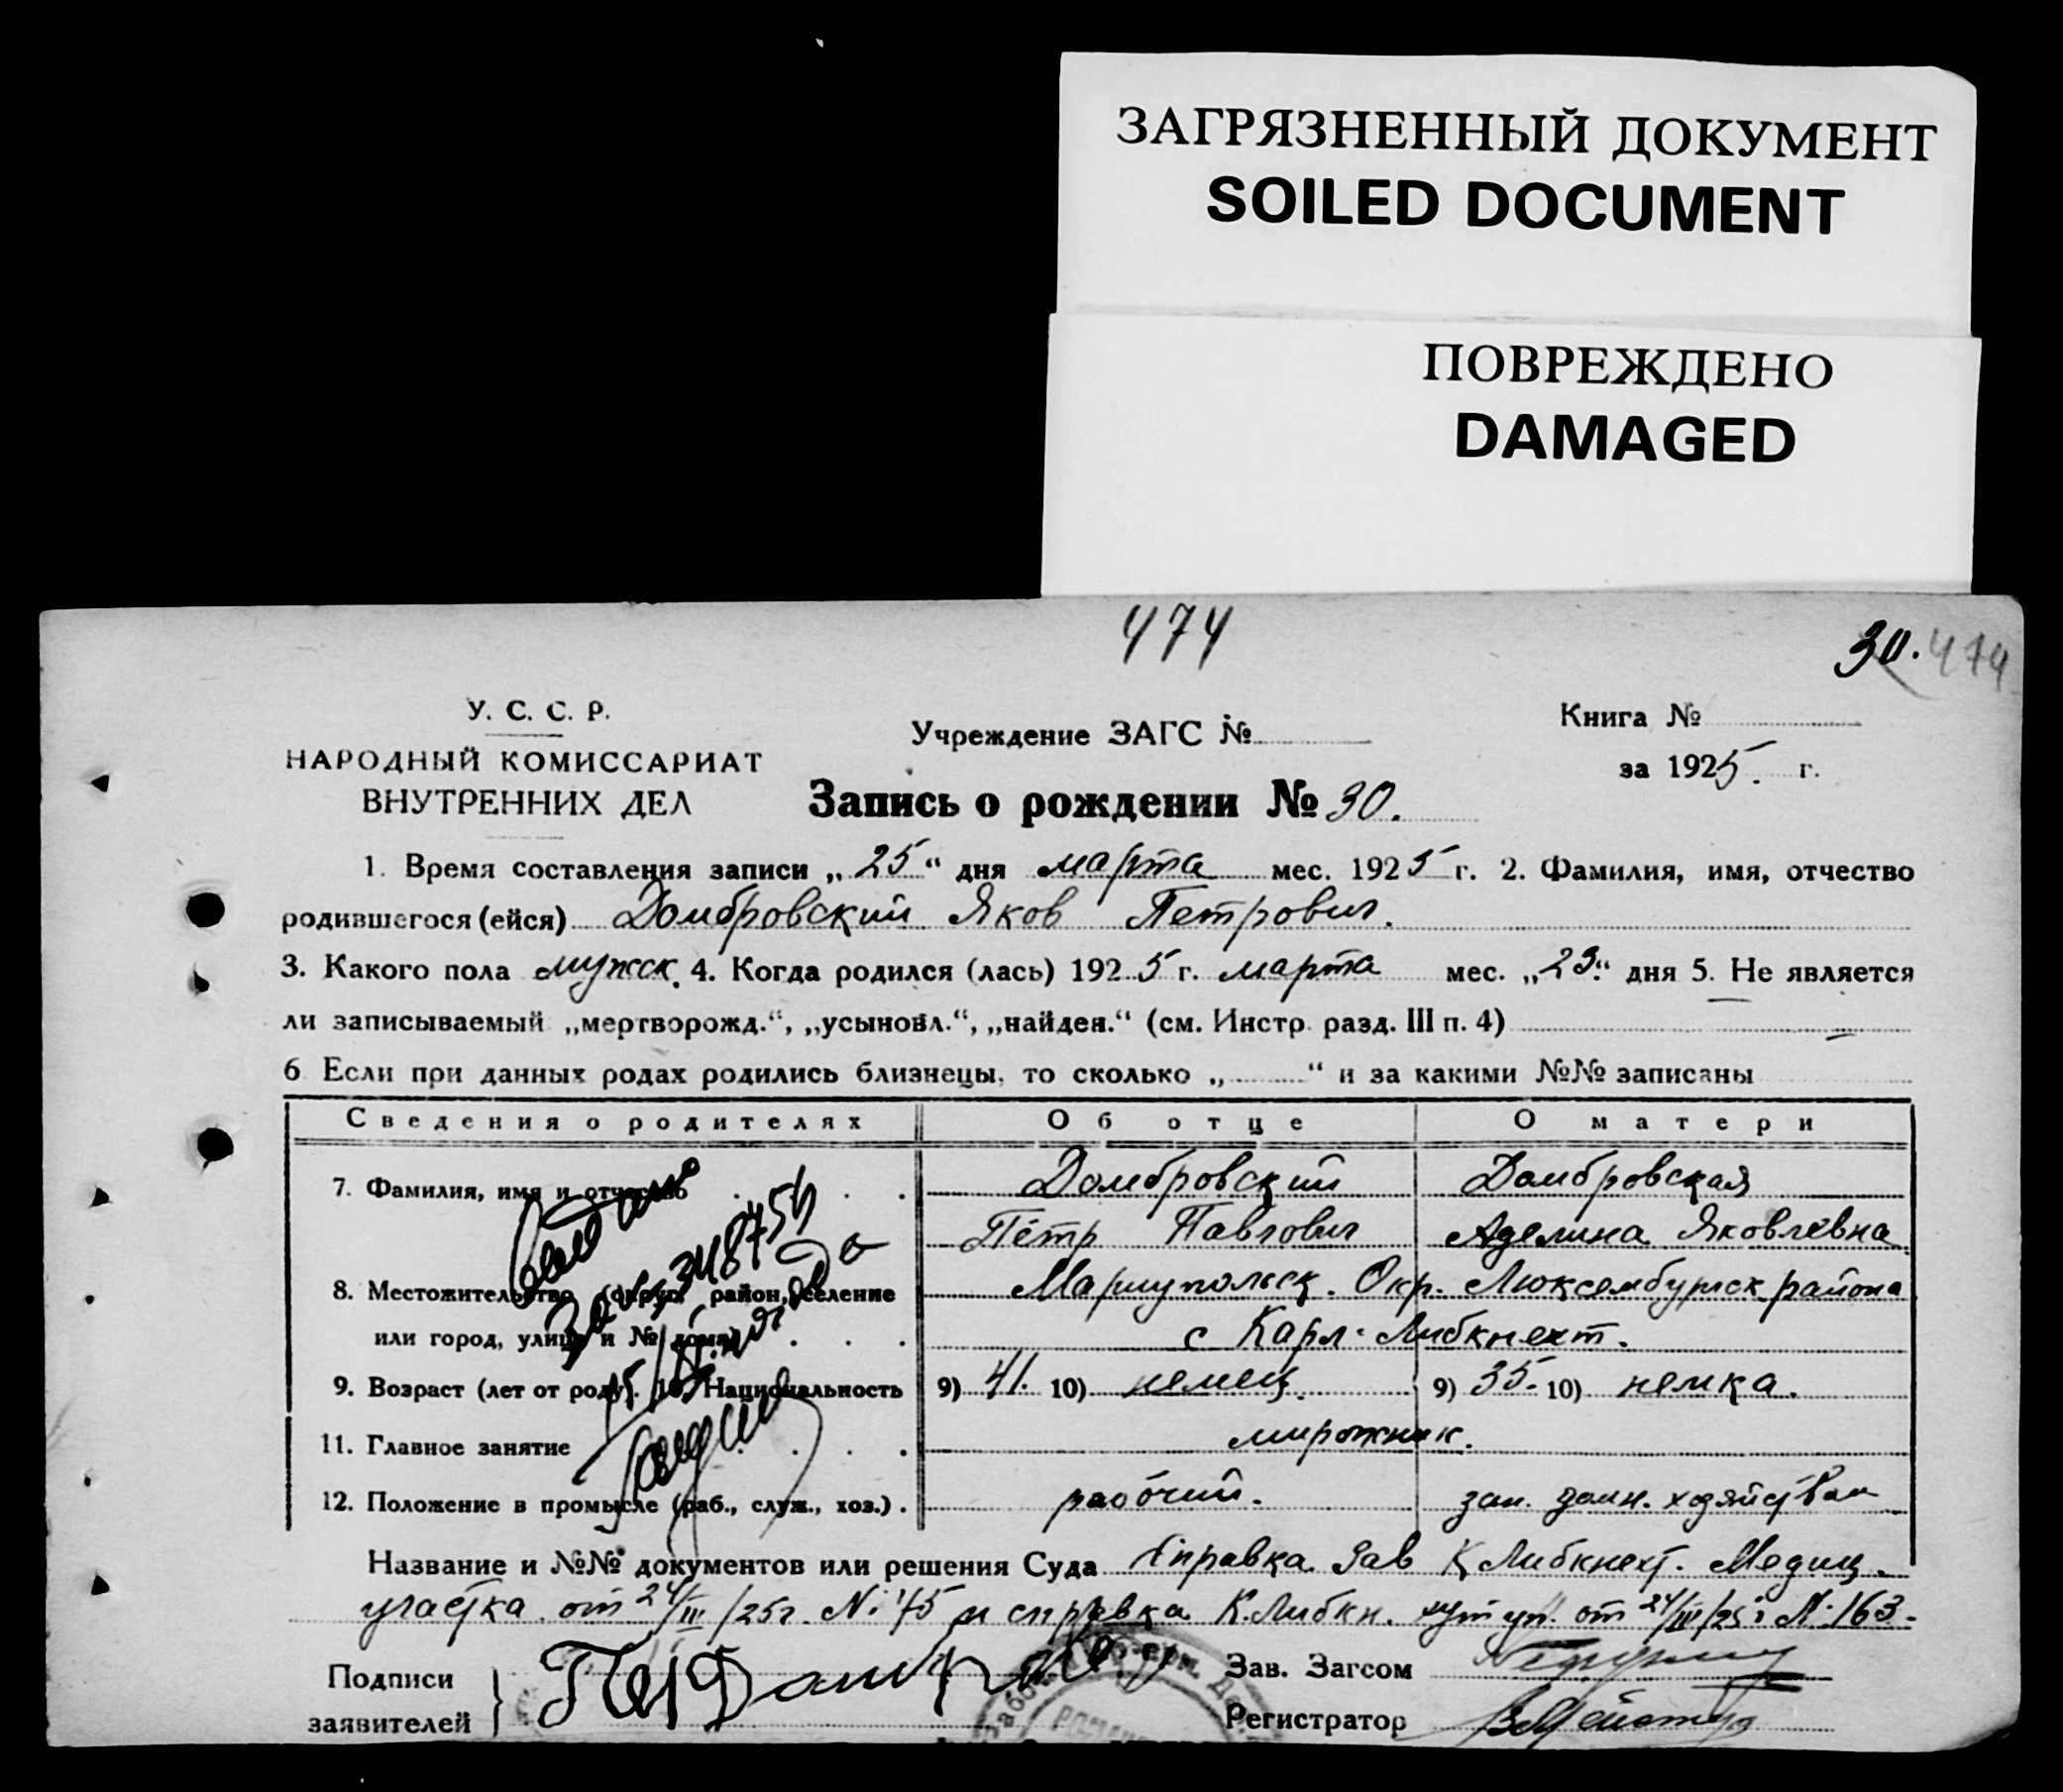 ЗАГРЯЗНЕННЫЙ ДОКУМЕНТ
SOILED DOCUMENT
ПОВРЕЖДЕНО
DAMAGED
474
30. 474
У. С. С. Р.
НАРОДНЫЙ КОМИССАРИАТ
ВНУТРЕННИХ ДЕЛ
Учреждение ЗАГС №
Книга №
за 1925. г.
Запись о рождении № 30.
1. Время составления записи „25“ дня марта мес. 1925 г. 2. Фамилия, имя, отчество
родившегося (ейся) Домбровский Яков Петрович.
3. Какого пола мужск. 4. Когда родился (лась) 1925 г. марта мес. „23“ дня 5. Не является
ли записываемый „мертворожд.“, „усыновл.“, „найден.“ (см. Инстр. разд. III п. 4)
6 Если при данных родах родились близнецы, то сколько „ “ и за какими №№ записаны
Сведения о родителях Об отце О матери
7. Фамилия, имя и отчество Домбровский Домбровская
Пётр Павлович Аделина Яковлевна
8. Местожительство (округ, район, селение Мариупольск. Окр. Люксембургск района
или город, улица и № дома) с Карл-Либкнехт.
9. Возраст (лет от роду). 10. Национальность 9) 41. 10) немец. 9) 35. 10) немка.
11. Главное занятие
12. Положение в промысле (раб., служ., хоз.) рабочий. зан. домн. хозяйством
348754
Название и №№ документов или решения Суда Справка Зав К Либкнехт. Медиц.
участка от 24/III/25г. № 75 и справка К. Либкн. от 24/III/25г № 163.
Подписи
заявителей
Зав. Загсом
Регистратор